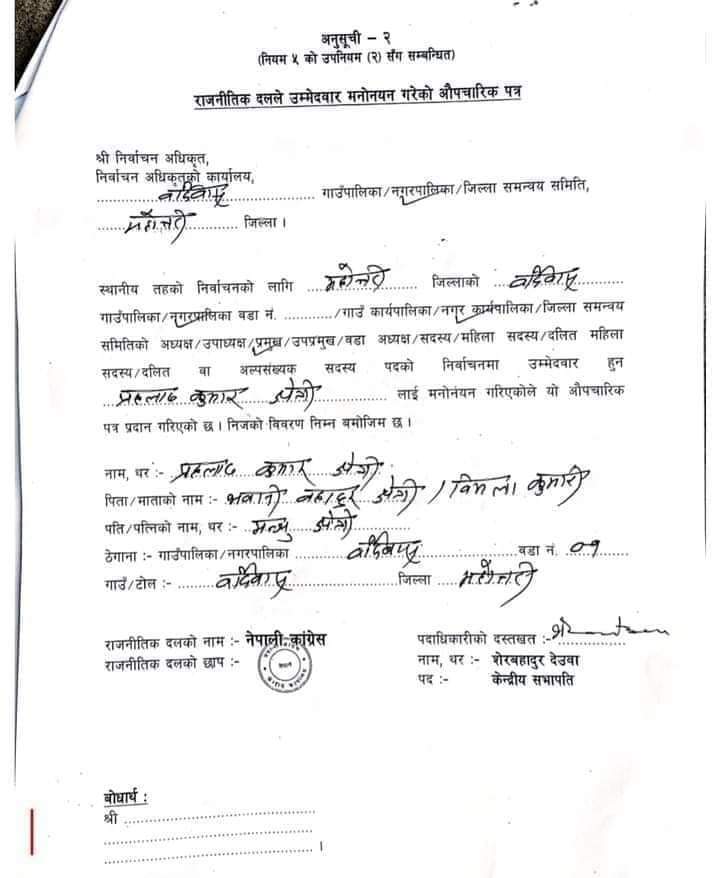 अनुसूची – २
(नियम ५ को उपनियम (२) सँग सम्बन्धित)
राजनीतिक दलले उम्मेदवार मनोनयन गरेको औपचारिक पत्र
श्री निर्वाचन अधिकृत,
निर्वाचन अधिकृतको कार्यालय,
बर्दिबास गाउँपालिका/नगरपालिका/जिल्ला समन्वय समिति,
महोत्तरी जिल्ला ।
स्थानीय तहको निर्वाचनको लागि महोत्तरी जिल्लाको बर्दिबास
गाउँपालिका/नगरपालिका वडा नं. ............/गाउँ कार्यपालिका/नगर कार्यपालिका/जिल्ला समन्वय
समितिको अध्यक्ष/उपाध्यक्ष/प्रमुख/उपप्रमुख/वडा अध्यक्ष/सदस्य/महिला सदस्य/दलित महिला
सदस्य/दलित वा अल्पसंख्यक सदस्य पदको निर्वाचनमा उम्मेदवार हुन
प्रहलाद कुमार क्षेत्री लाई मनोनंयन गरिएकोले यो औपचारिक
पत्र प्रदान गरिएको छ । निजको विवरण निम्न बमोजिम छ ।
नाम, थर :- प्रहलाद कुमार क्षेत्री
पिता/माताको नाम :- भवानी बहादुर क्षेत्री / विमला कुमारी
पति/पत्निको नाम, थर :- मन्जु क्षेत्री
ठेगाना :- गाउँपालिका/नगरपालिका बर्दिबास वडा नं. ०१
गाउँ/टोल :- बर्दिबास जिल्ला महोत्तरी
राजनीतिक दलको नाम :- नेपाली कांग्रेस
राजनीतिक दलको छाप :-
पदाधिकारीको दस्तखत :-
नाम, थर :- शेरबहादुर देउवा
पद :- केन्द्रीय सभापति
बोधार्थ :
श्री ........................................
........................................
........................................ ।